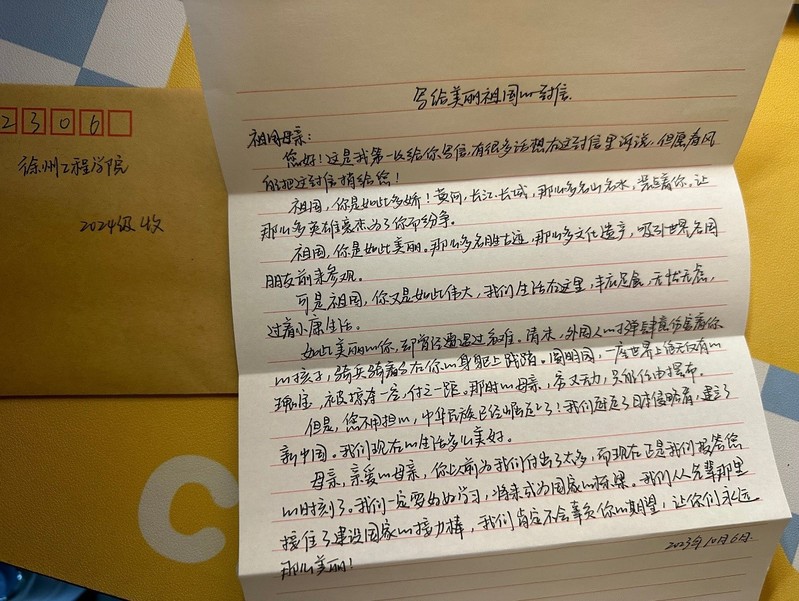 2306
徐州工程学院
2024级 收
写给美丽祖国的一封信
祖国母亲:
您好!这是我第一次给你写信,有很多话想在这封信里诉说,但愿春风
能把这封信捎给您!
祖国,你是如此多娇!黄河、长江、长城,那么多名山名水,装点着你。让
那么多英雄豪杰为了你而纷争。
祖国,你是如此美丽。那么多名胜古迹,那么多文化遗产,吸引世界各国
朋友前来参观。
可是祖国,你又是如此伟大,我们生活在这里,丰衣足食,无忧无虑,
过着小康生活。
如此美丽的你,却曾经遭遇过多难。清末,外国人的子弹肆意伤害着你
的孩子,骑兵骑着马在你的身躯上践踏。圆明园,一座世界上绝无仅有的
瑰宝,被掠夺一空,付之一炬。那时的母亲,带又动,只能任由摆布。
但是,您不用担心,中华民族已经崛起了!我们赶走了日本侵略者,建立了
新中国。我们现在的生活多么美好。
母亲,亲爱的母亲,你以前为我们付出了太多,而现在正是我们报答您
的时刻了。我们一定要好好学习,将来成为国家的栋梁。我们从先辈那里
接住了建设国家的接力棒,我们肯定不会辜负你的期望,让你们永远
那么美丽!
2023年10月6日
C